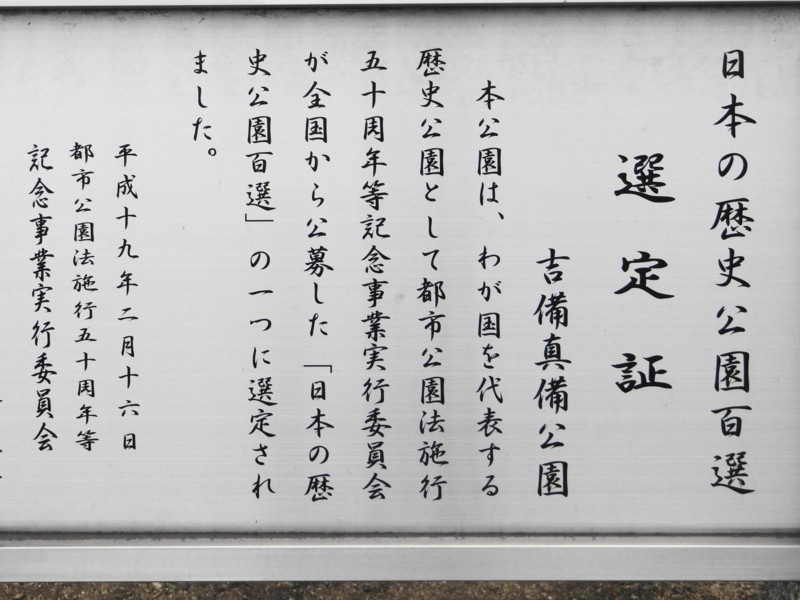 日本の歴史公園百選
選定証
吉備真備公園
本公園は、わが国を代表する
歴史公園として都市公園法施行
五十周年等記念事業実行委員会
が全国から公募した「日本の歴
史公園百選」の一つに選定され
ました。
平成十九年二月十六日
都市公園法施行五十周年等
記念事業実行委員会